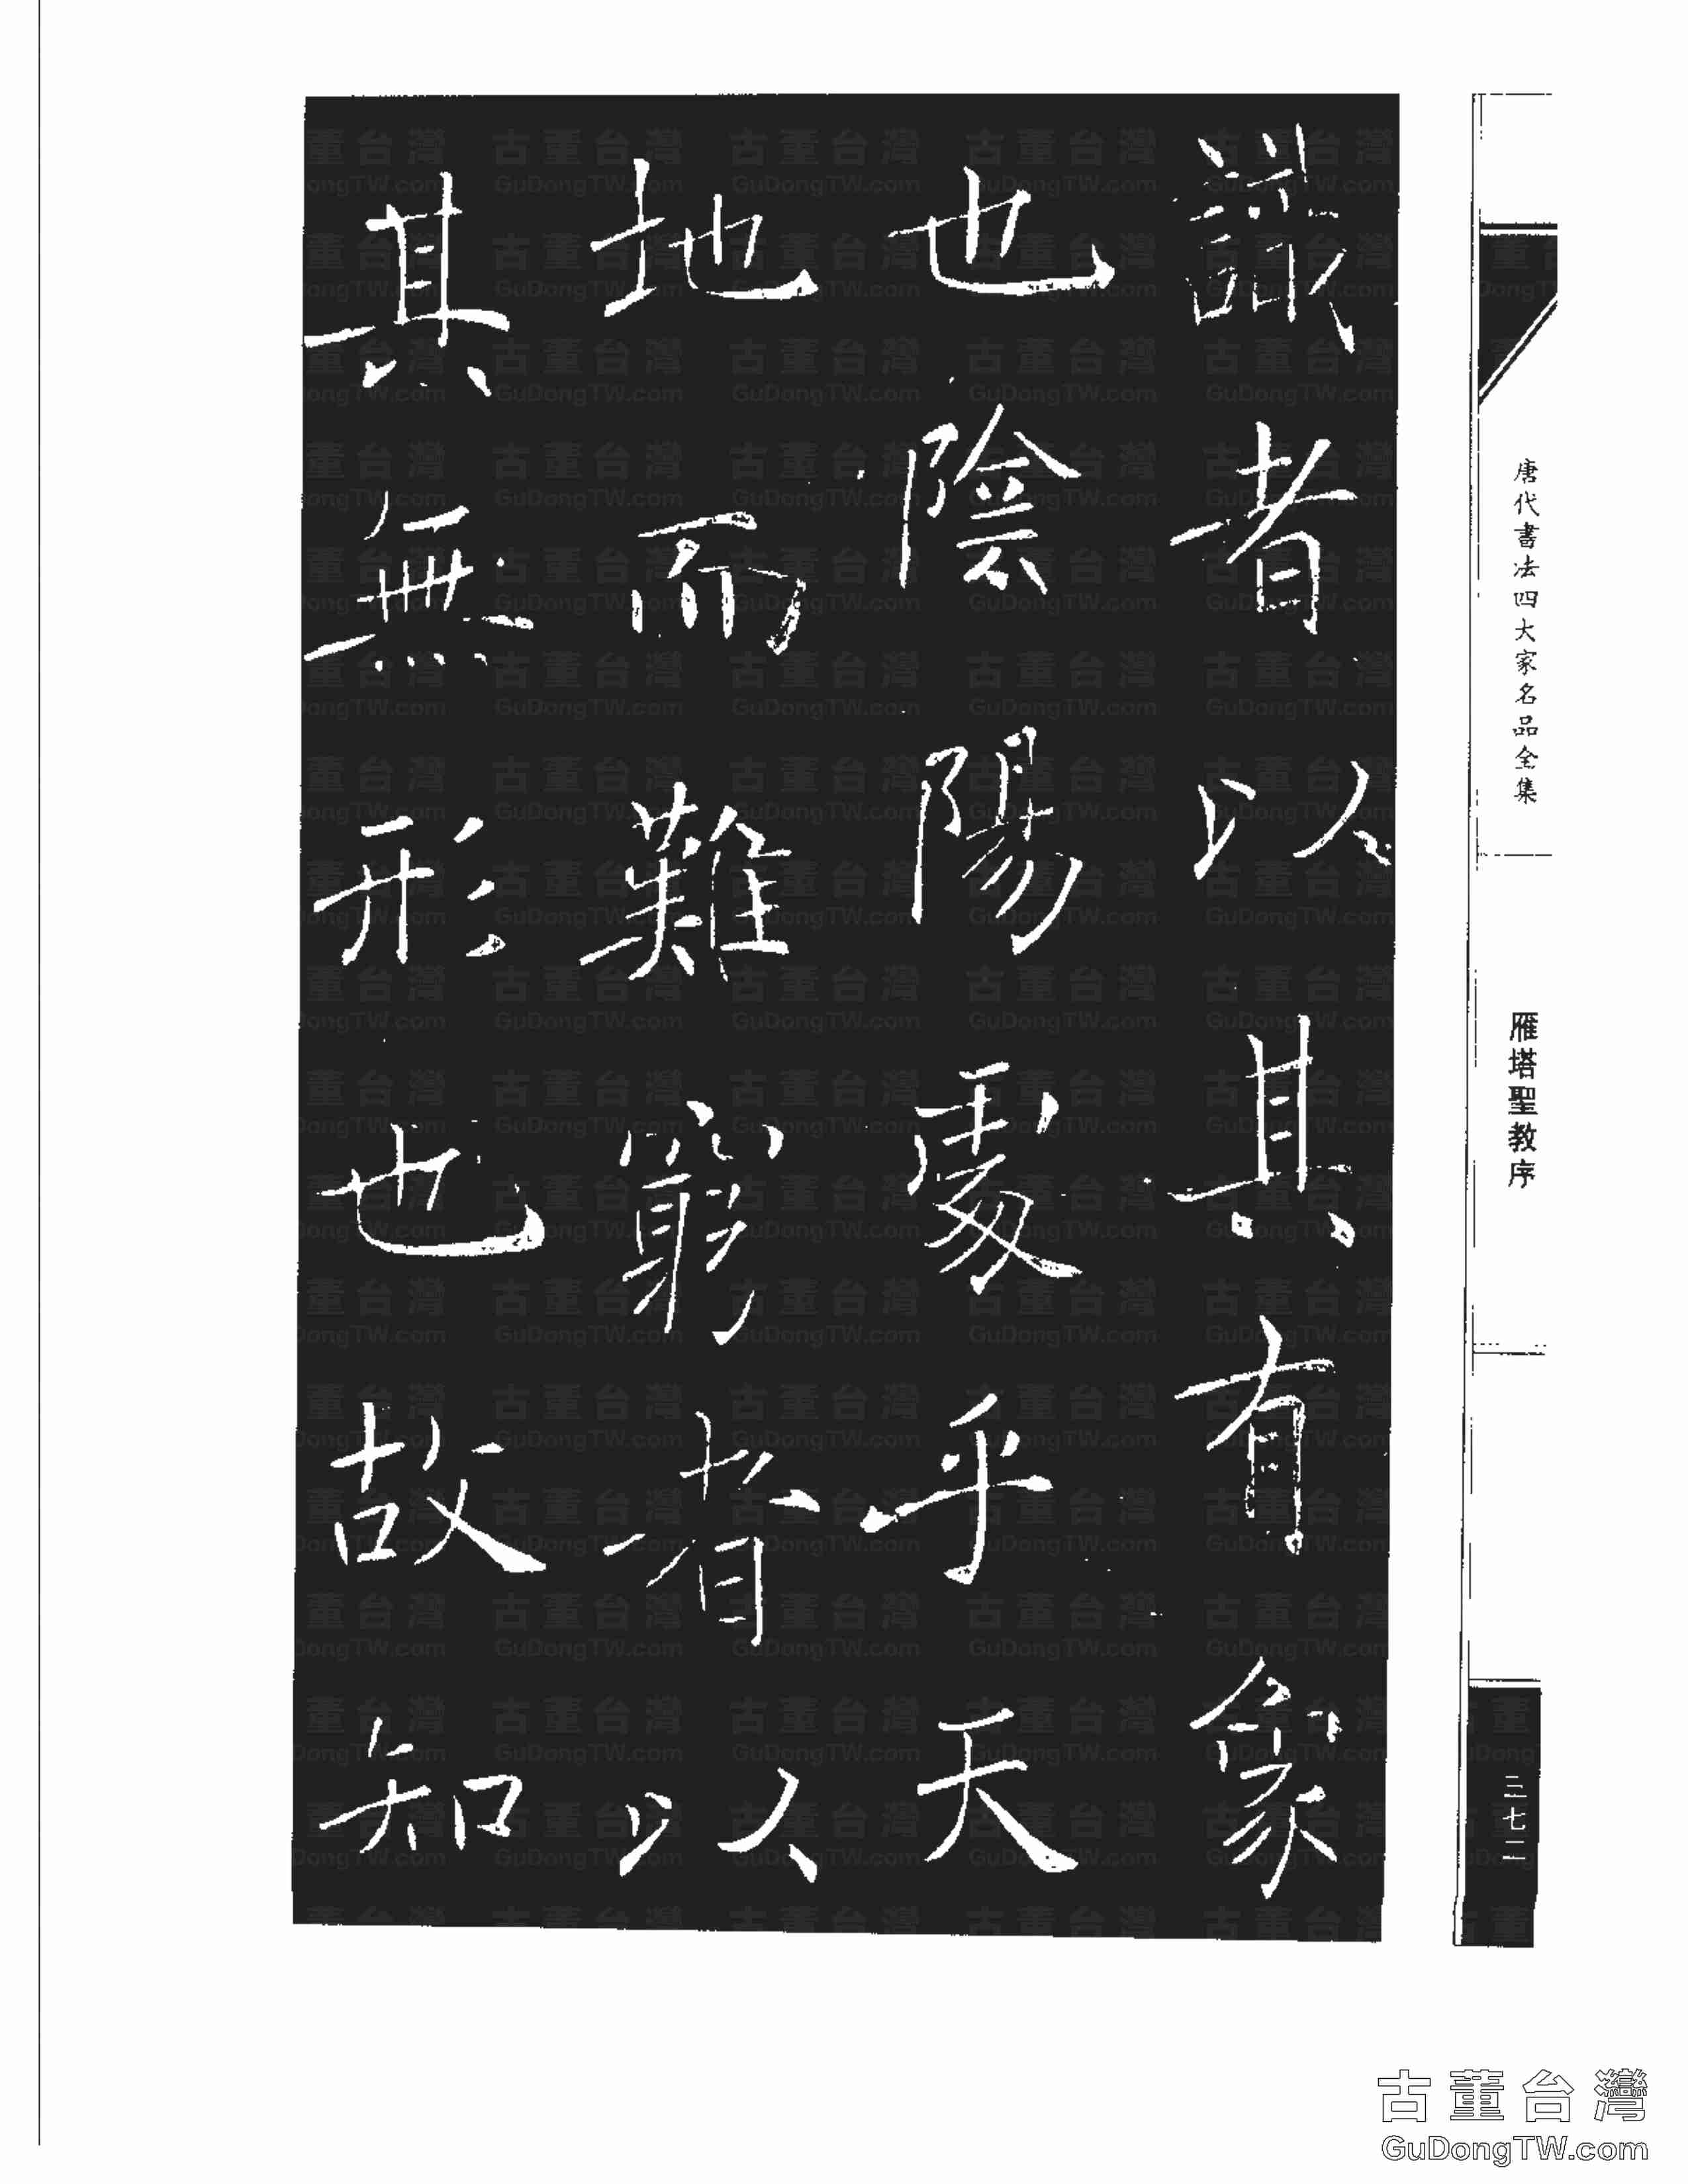 識者以其有象
也陰陽處乎天
地而難窮者以
其無形也故知
唐代書法四大家名品全集
雁塔聖教序
三七二
古董台灣
GuDongTW.com